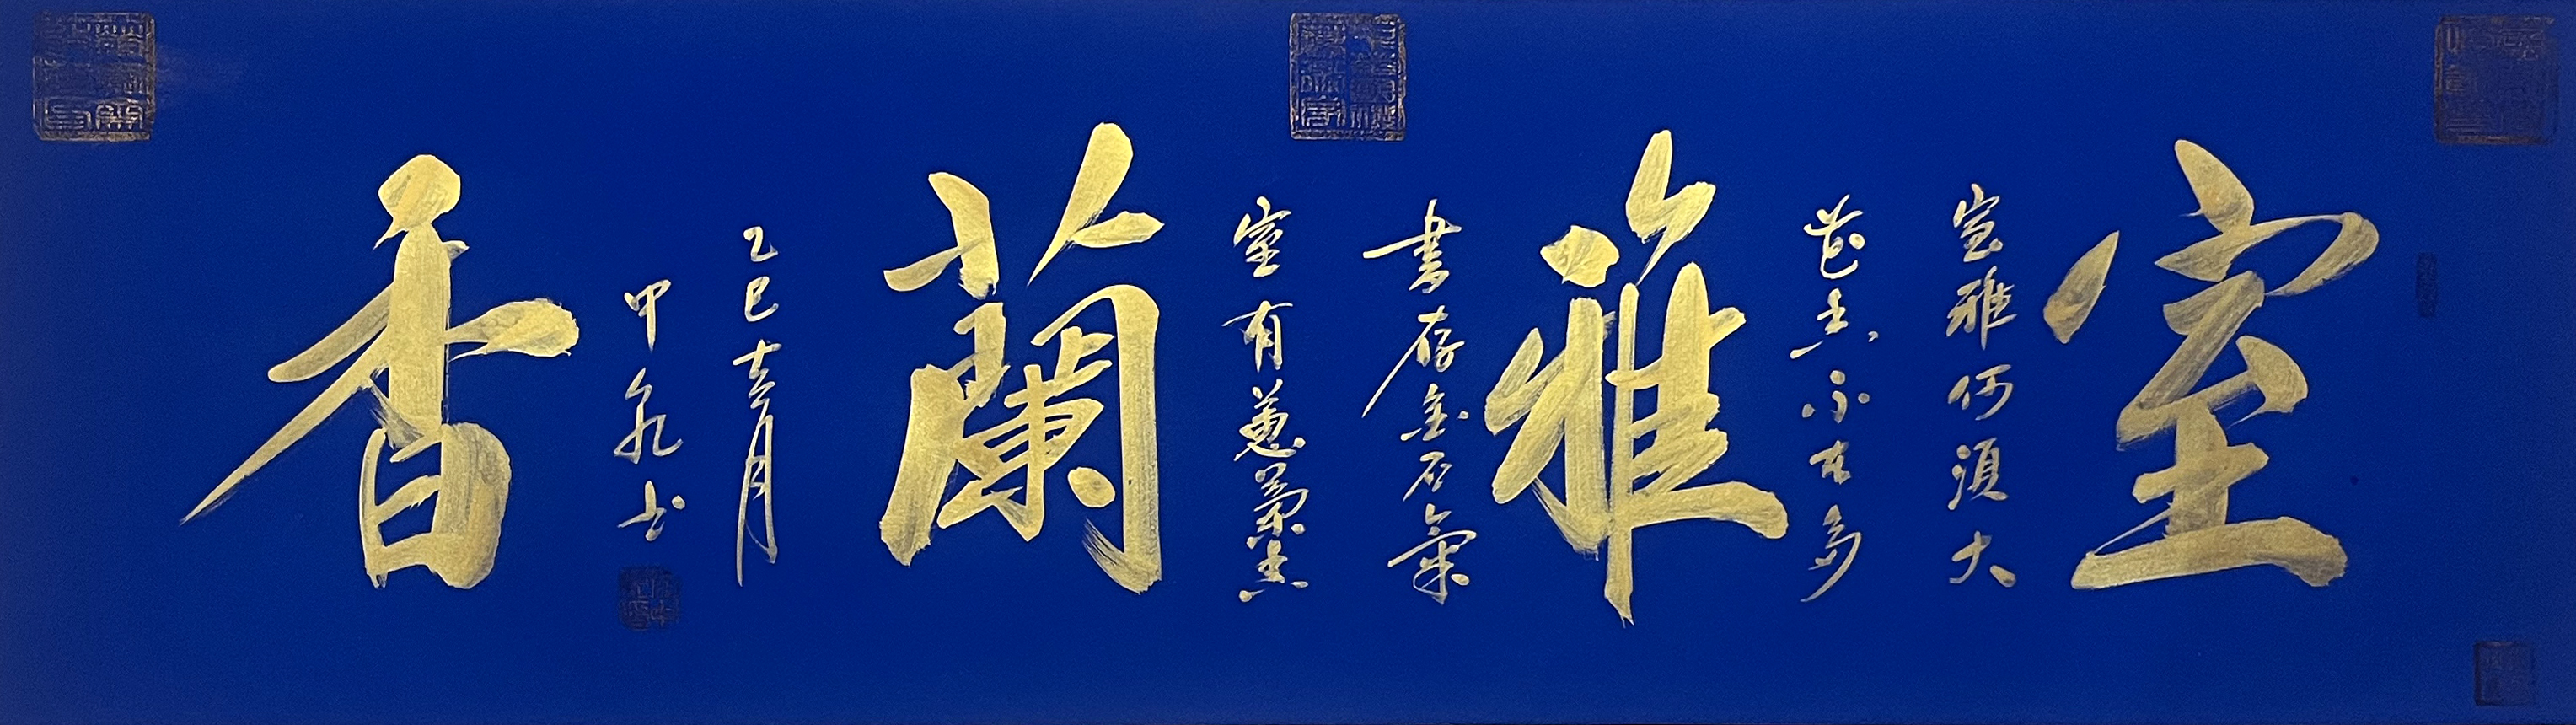 室
室雅何須大
花香不在多
雅
書存金石氣
室有蕙蘭香
蘭
乙巳吉月
甲泉书
香